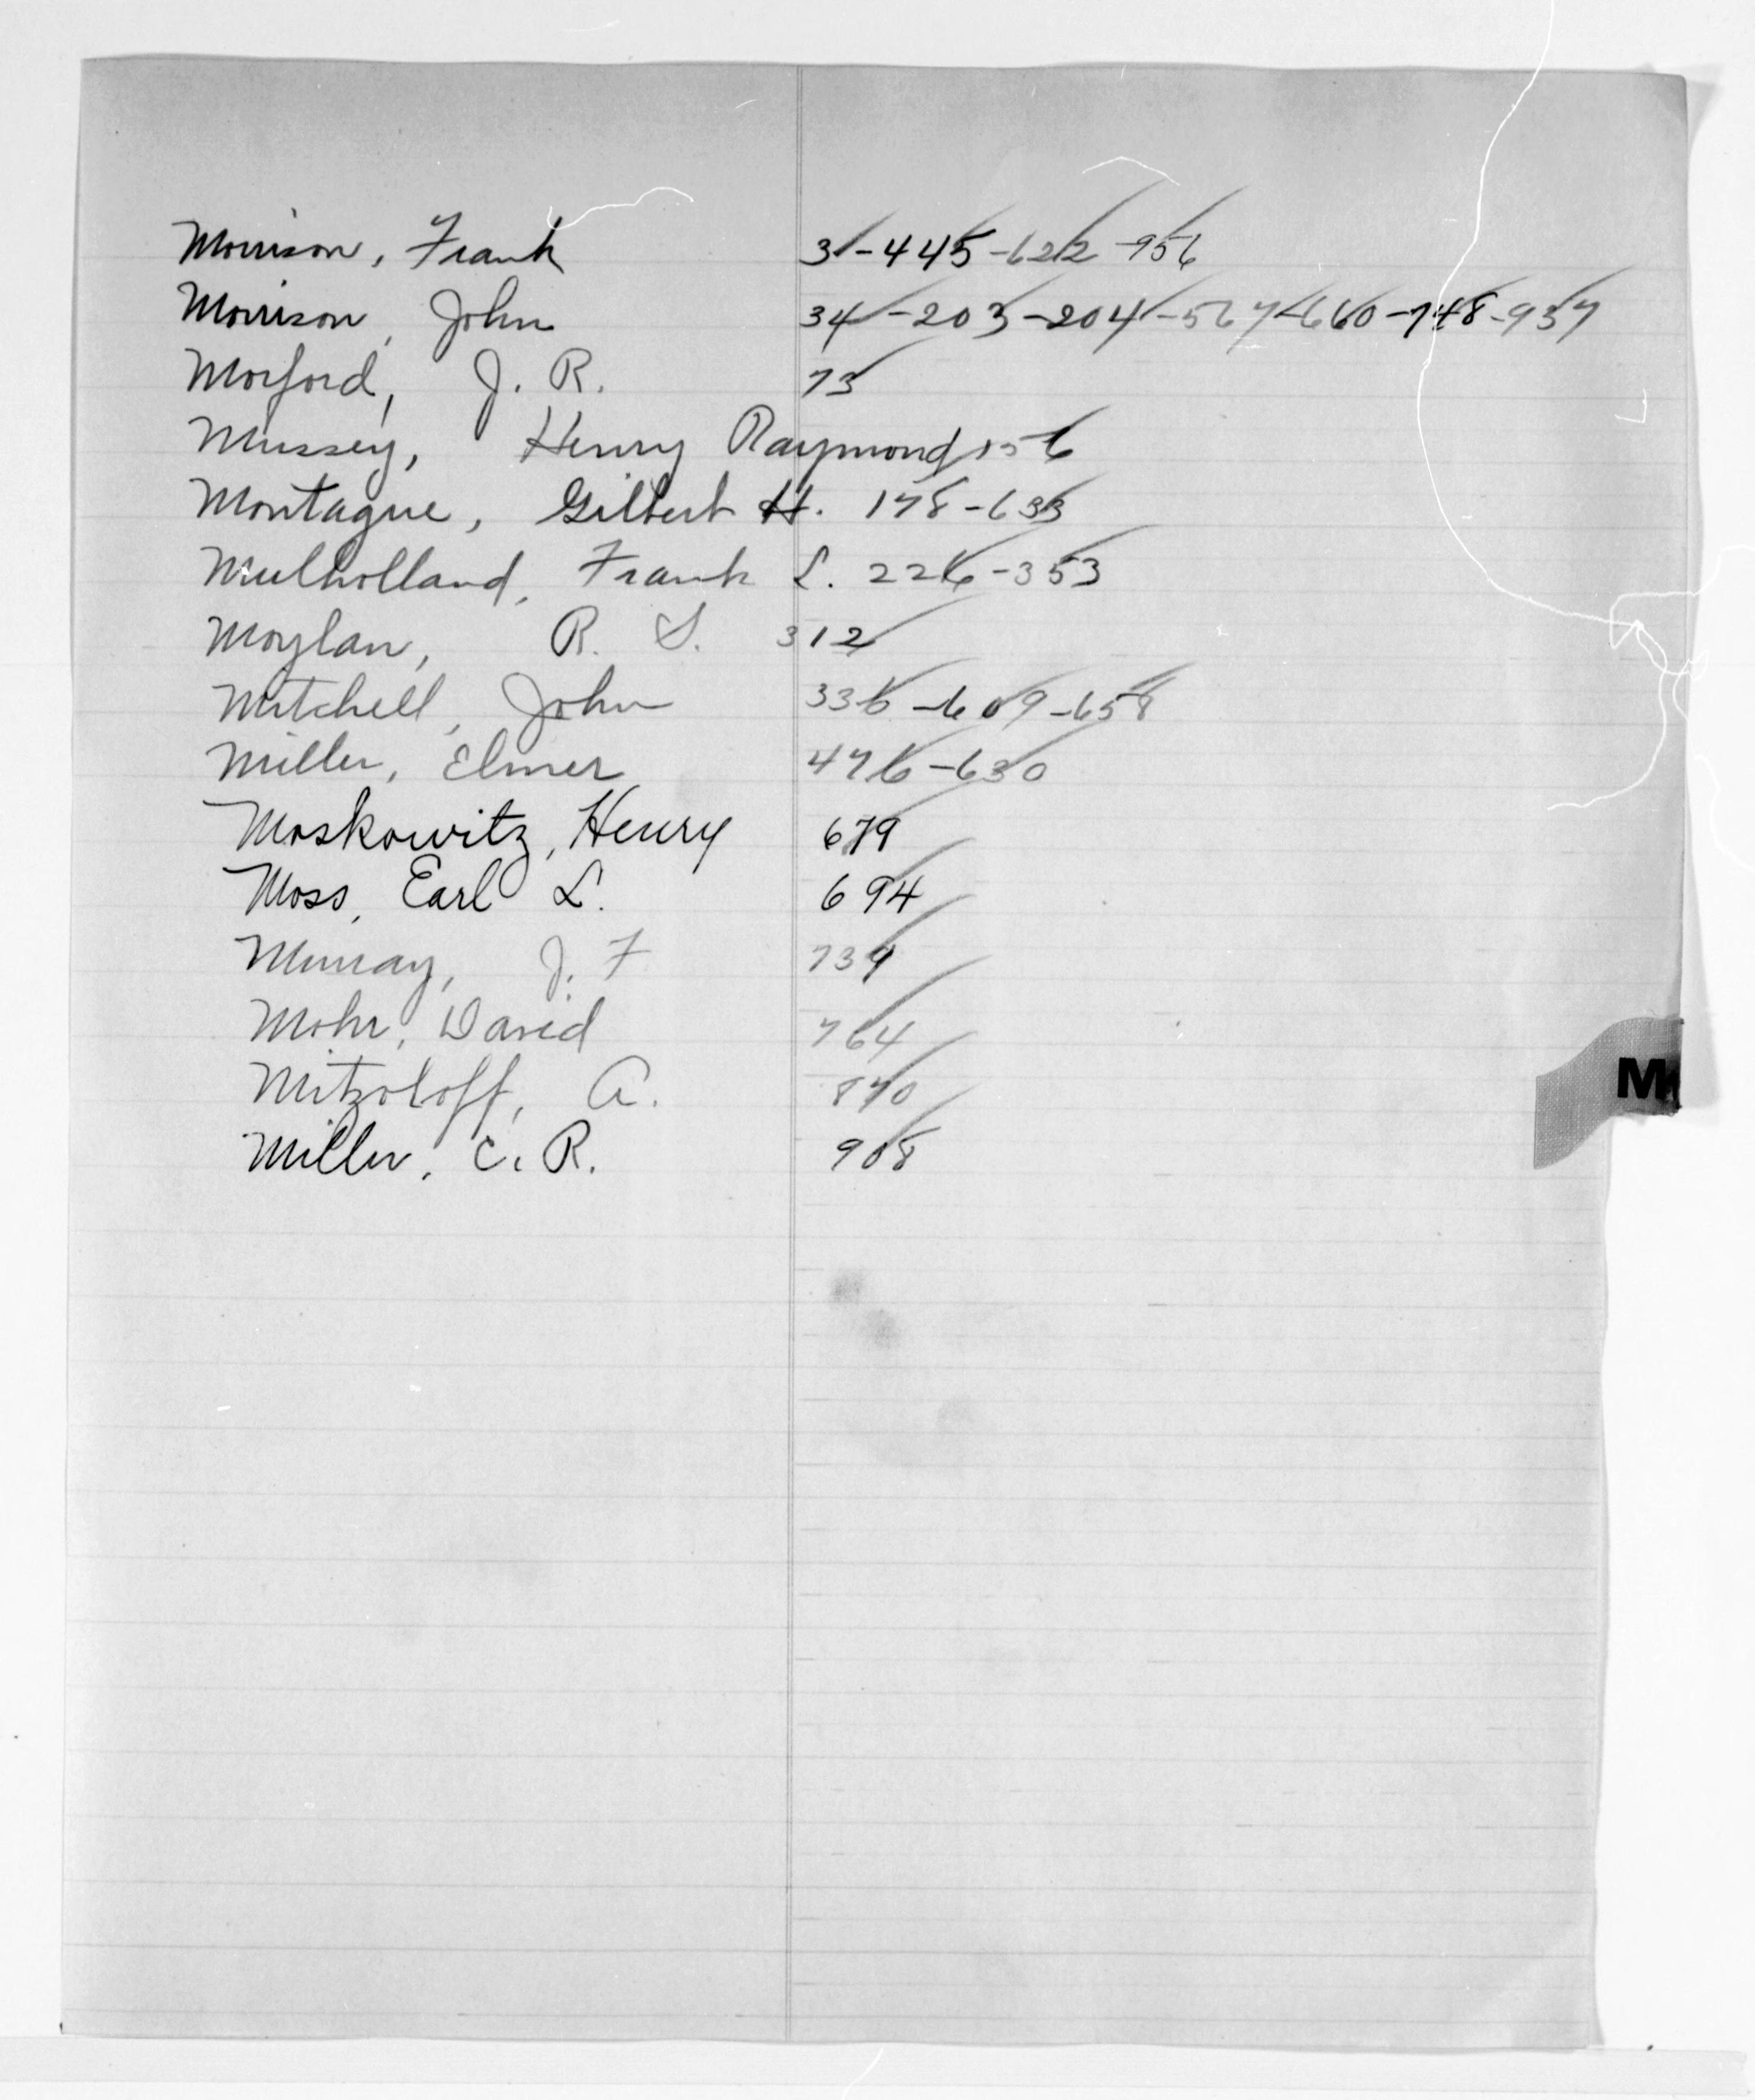 Morrison, Frank 31-445-622-956
Morrison, John 34-203-204-567-660-748-937
Morford, J. R. 73
Mussey, Henry Raymond 156
Montague, Gilbert H. 178-633
Mulholland, Frank L. 226-353
Moylan, R. S. 312
Mitchell, John 336-609-658
Miller, Elmer 476-630
Moskowitz, Henry 679
Moss, Earl L. 694
Murray, J. F 739
Mohr, David 764
M
Mitzoloff, A. 870
Miller, C. R. 908